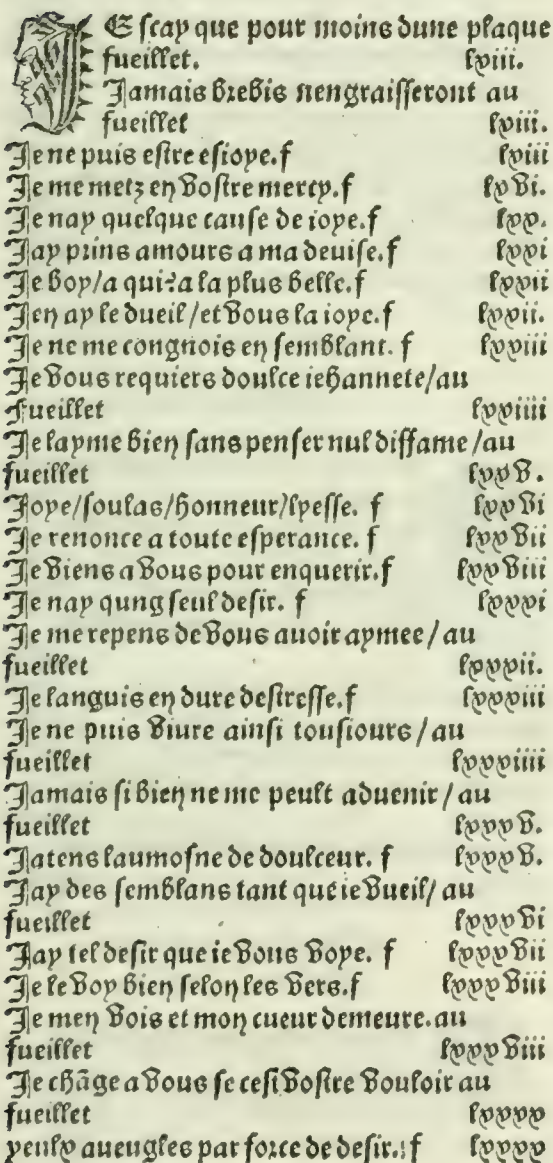 JE scay que pour moins dune plaque
fueillet. lxiii.
Jamais brebis nengraisseront au
fueillet lxiii.
Je ne puis estre esioye.f lxiii
Je me metz en vostre mercy.f lxvi.
Je nay quelque cause de ioye.f lxx.
Jay prins amours a ma deuise.f lxxi
Je boy/a qui?a la plus belle.f lxxii
Jen ay le dueil/et vous la ioye.f lxxii.
Je ne me congnois en semblant. f lxxiii
Je vous requiers doulce iehannete/au
fueillet lxxiiii
Je layme bien sans penser nul diffame/au
fueillet lxxv.
Joye/soulas/honneur/lyesse. f lxxvi
Je renonce a toute esperance. f lxxvii
Je viens a vous pour enquerir.f lxxviii
Je nay qung seul desir. f lxxxi
Je me repens de vous auoir aymee/au
fueillet lxxxii.
Je languis en dure destresse.f lxxxiii
Je ne puis viure ainsi tousiours/au
fueillet lxxxiiii
Jamais si bien ne me peult aduenir/au
fueillet lxxxv.
Jatens laumosne de doulceur. f lxxxv.
Jay des semblans tant que ie vueil/au
fueillet lxxxvi
Jay tel desir que ie vous voye. f lxxxvii
Je le voy bien selon les vers.f lxxxviii
Je men vois et mon cueur demeure.au
fueillet lxxxviii
Je chãge a vous se cest vostre vouloir au
fueillet lxxxx
yeulx aueugles par force de desir.:f lxxxx